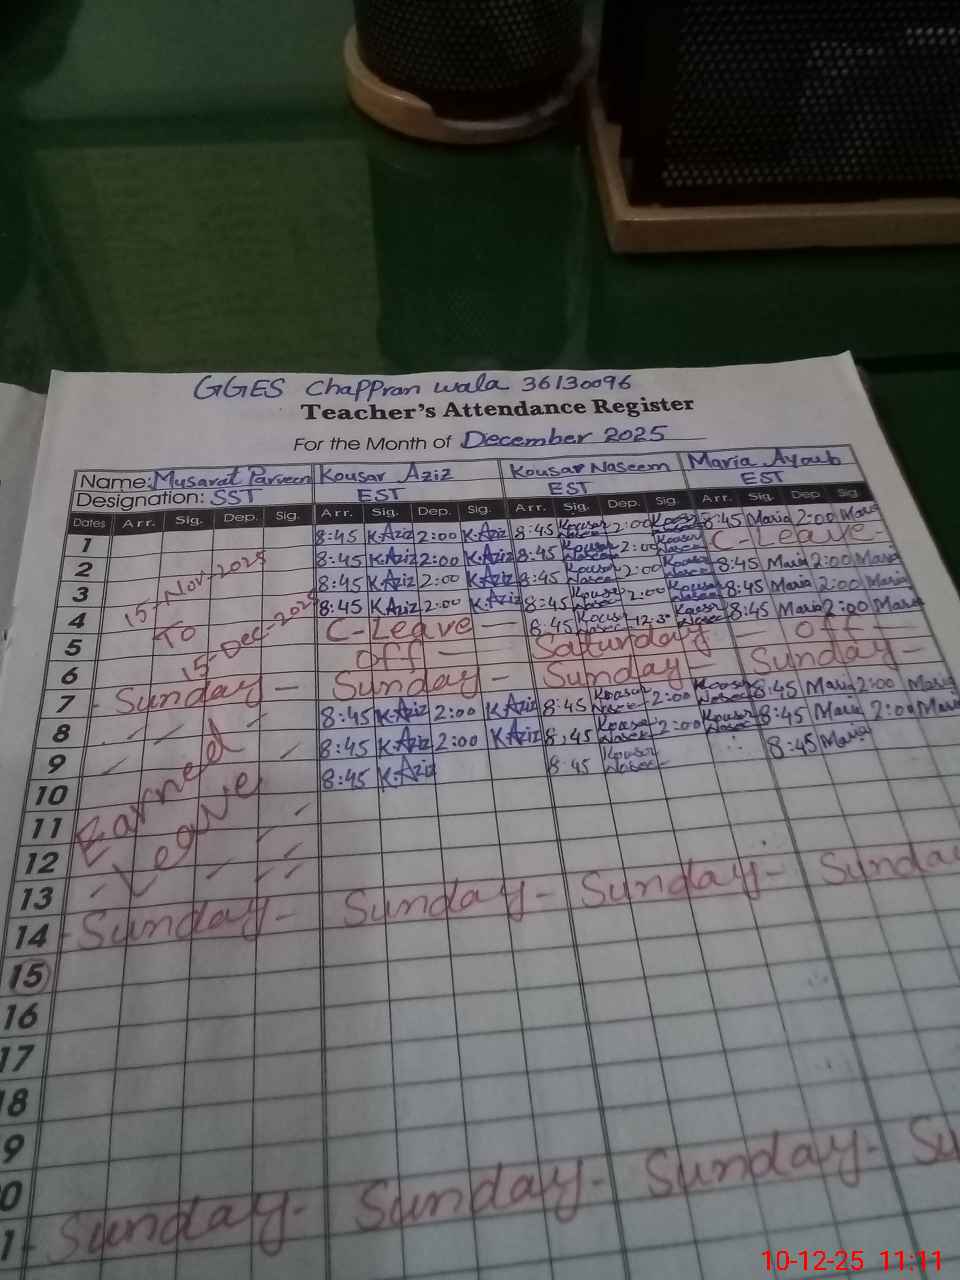 GGES Chappran wala 36130096
Teacher's Attendance Register
For the Month of December 2025
Name: Musarat Parveen Kousar Aziz Kousar Naseem Maria Ayoub
Designation: SST EST EST EST
Dates Arr. Sig. Dep. Sig. Arr. Sig. Dep. Sig. Arr. Sig. Dep. Sig. Arr. Sig. Dep Sig
1 8:45 K.Aziz 2:00 K.Aziz 8:45 Kousar Naseem 2:00 Kousar Naseem 8:45 Maria 2:00 Maria
2 8:45 K.Aziz 2:00 K.Aziz 8:45 Kousar Naseem 2:00 Kousar Naseem C-Leave-
3 15-Nov-2025 8:45 K.Aziz 2:00 K.Aziz 8:45 Kousar Naseem 2:00 Kousar Naseem 8:45 Maria 2:00 Maria
4 To 8:45 K.Aziz 2:00 K.Aziz 8:45 Kousar Naseem 2:00 Kousar Naseem 8:45 Maria 2:00 Maria
5 15-Dec-2025 C-Leave - 8:45 Kousar Naseem 12:30 Kousar Naseem 8:45 Maria 2:00 Maria
6 off - Saturday - off -
7 - Sunday - Sunday - Sunday - Sunday -
8 8:45 K.Aziz 2:00 K.Aziz 8:45 Kousar Naseem 2:00 Kousar Naseem 8:45 Maria 2:00 Maria
9 8:45 K.Aziz 2:00 K.Aziz 8:45 Kousar Naseem 2:00 Kousar Naseem 8:45 Maria 2:00 Maria
10 8:45 K.Aziz 8:45 Kousar Naseem 8:45 Maria
11 Earned
12 Leave
13
14 - Sunday - Sunday - Sunday - Sunday
15
16
17
18
9
0
1 - Sunday - Sunday - Sunday - Su
10-12-25 11:11